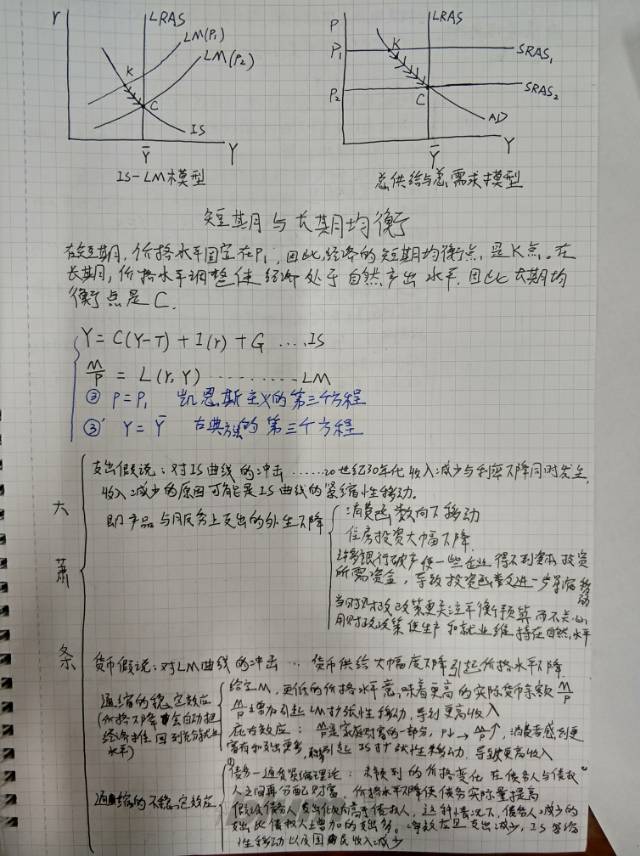 r LRAS LM(P₁) LM(P₂) K C IS Ȳ Y
IS-LM模型
P LRAS P₁ K SRAS₁ P₂ C SRAS₂ AD Ȳ Y
总供给与总需求模型
短期与长期均衡
在短期,价格水平固定在P₁,因此经济的短期均衡点是K点。在
长期,价格水平调整使经济处于自然产出水平.因此长期均
衡点是C.
Y = C(Y-T) + I(r) + G ....IS
M/P = L(r,Y) .......... LM
③ P=P₁ 凯恩斯主义的第三个方程
③' Y=Ȳ 古典的第三个方程
大萧条
支出假说:对IS曲线的冲击 ......20世纪30年代收入减少与利率下降同时发生,
收入减少的原因可能是IS曲线的紧缩性移动.
即产品与服务上支出的外生下降
消费函数向下移动
住房投资大幅下降
许多银行破产使一些企业得不到资本投资
所需资金,导致投资函数进一步 移动
当时财政政策更关注平衡预算而不是
用财政政策使生产和就业维持在自然水平
货币假说:对LM曲线的冲击 … 货币供给大幅度下降引起价格水平下降
通缩的稳定效应
(价格下降会自动把
经济推回到充分就业
水平)
给定M,更低的价格水平意味着更高的实际货币余额 M/P
M/P增加引起LM扩张性移动,导致更高收入
庇古效应: 是家庭财富的一部分,P↓→ ↑,消费者感到更
富有和支出更多,引起IS扩张性移动,导致更高收入
通缩的不稳定效应
① 债务-通货紧缩理论:未预到的价格变化在债务人与债权
人之间再分配财富,价格水平下降使债务实际量提高
假设债务人支出倾向高于债权人,这种情况下,债务人减少的
支出比债权人增加的支出多。 支出减少,IS紧缩
性移动 国民收入减少